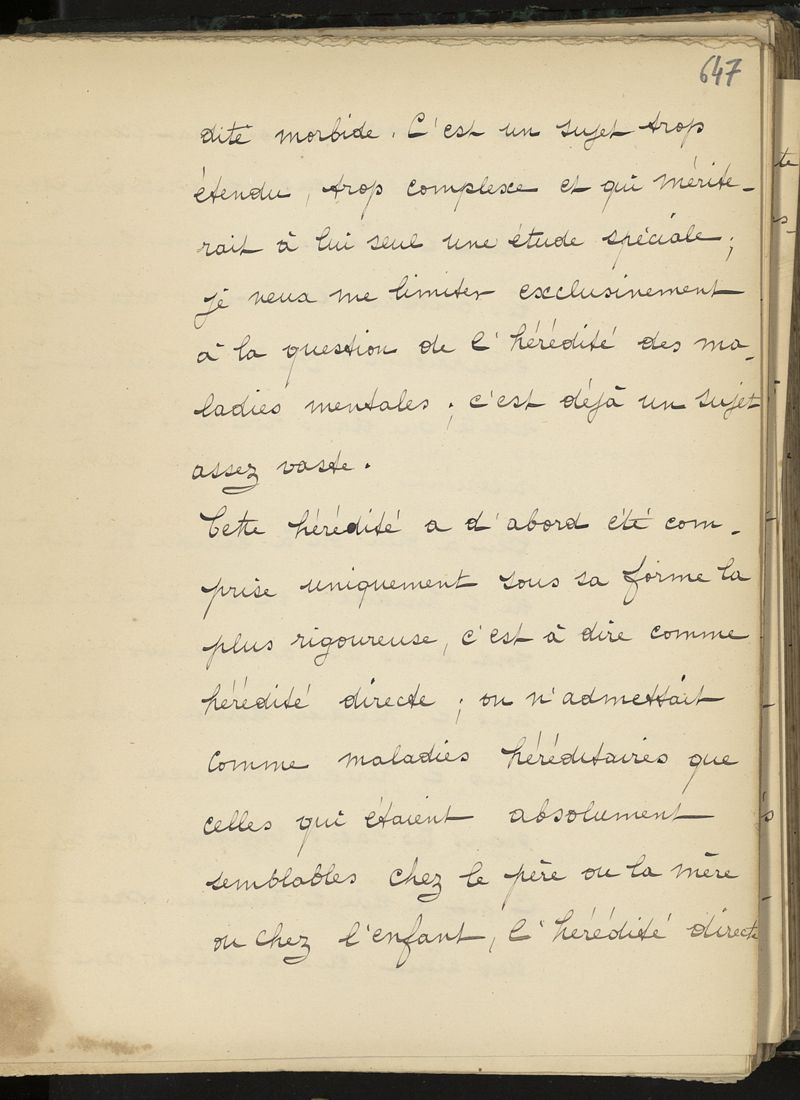 647
dité morbide. C'est un sujet trop
étendu, trop complexe et qui mérite-
rait à lui seul une étude spéciale;
je veux me limiter exclusivement
à la question de l'hérédité des ma-
ladies mentales; c'est déjà un sujet
assez vaste.
Cette hérédité a d'abord été com-
prise uniquement sous sa forme la
plus rigoureuse, c'est à dire comme
hérédité directe; on n'admettait
comme maladies héréditaires que
celles qui étaient absolument
semblables chez le père ou la mère
ou chez l'enfant, l'hérédité directe